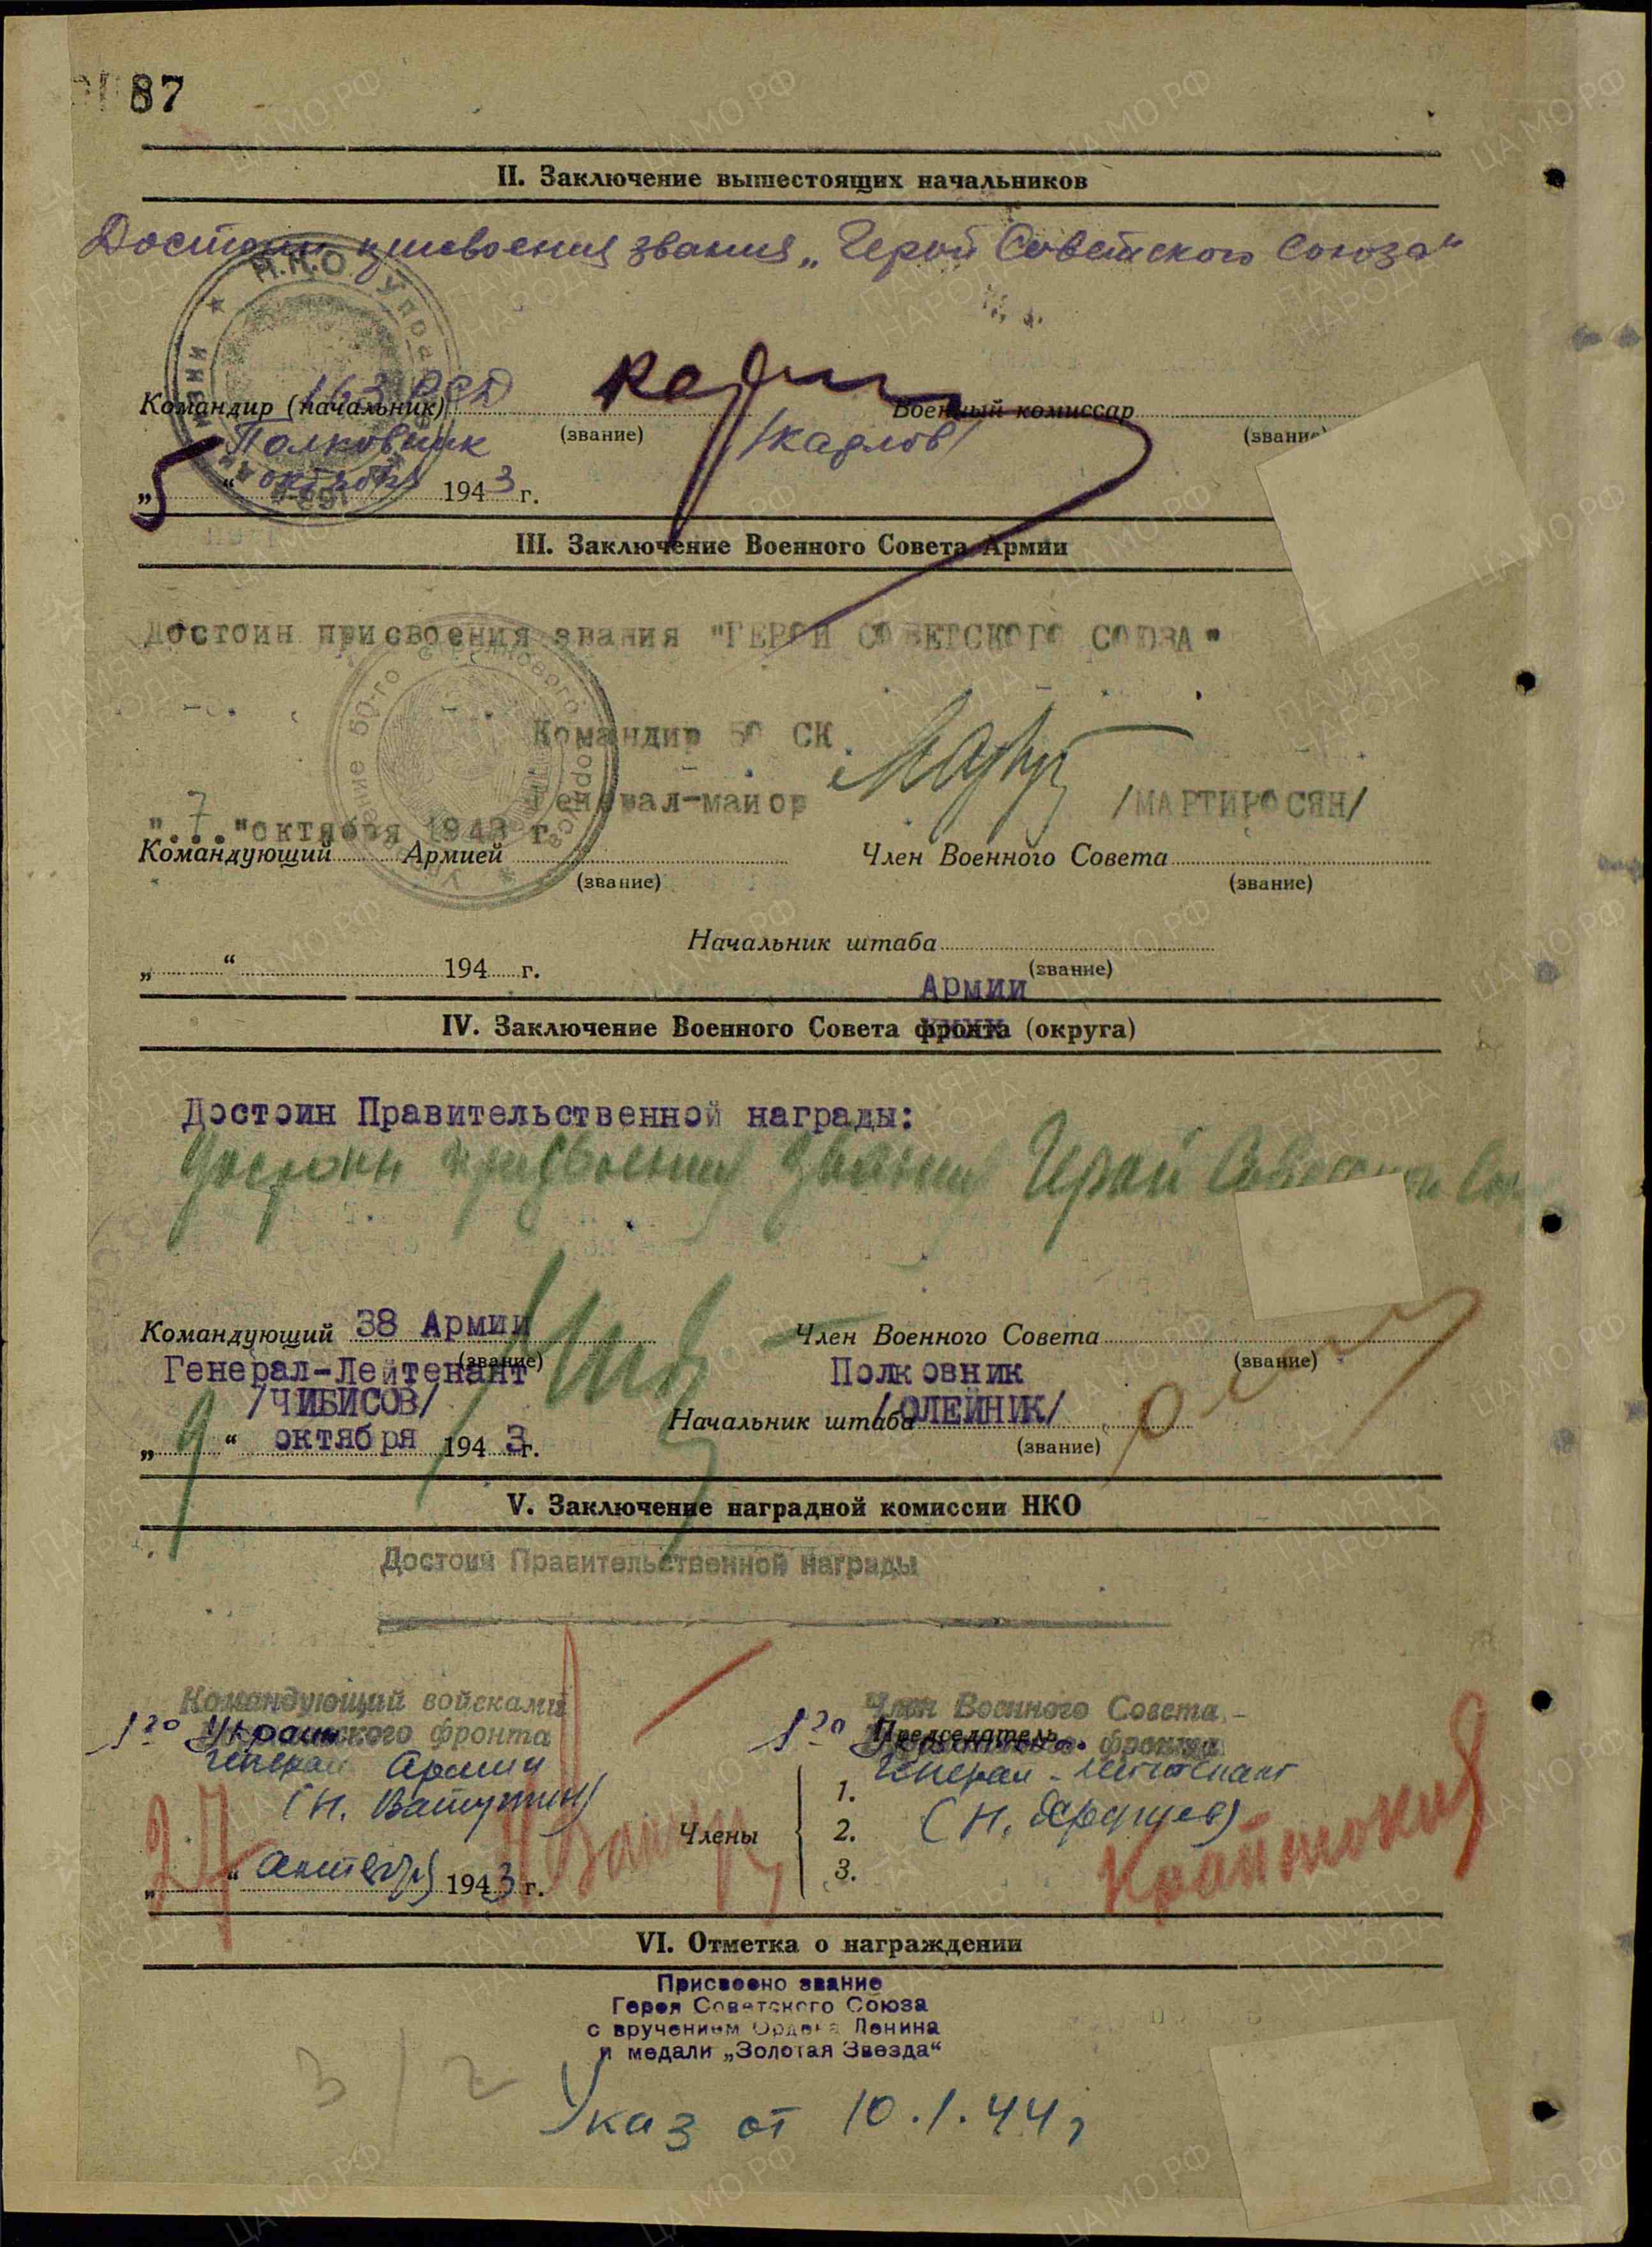 87
II. Заключение вышестоящих начальников
Достоин присвоения звания „Герой Советского Союза“
Командир (начальник) 163 РСД
Военный комиссар
(звание)
(звание)
Полковник
/Карлов/
„5“ октября 1943 г.
III. Заключение Военного Совета Армии
Достоин присвоения звания "ГЕРОЙ СОВЕТСКОГО СОЮЗА"
Командир 50 СК
Генерал-майор /МАРТИРОСЯН/
"7." октября 1943 г.
Командующий Армией
Член Военного Совета
(звание)
(звание)
Начальник штаба
(звание)
„ “ 194 г.
Армии
IV. Заключение Военного Совета фронта (округа)
Достоин Правительственной награды:
Достоин присвоения звания Герой Советского
Командующий 38 Армии
Член Военного Совета
(звание)
(звание)
Генерал-Лейтенант
Полковник
/ЧИБИСОВ/
Начальник штаба /ОЛЕЙНИК/
(звание)
„9“ октября 1943 г.
V. Заключение наградной комиссии НКО
Достоин Правительственной награды
Командующий войсками
Член Военного Совета
1го Украинского фронта
1го фронта
Председатель
Генерал Армии
Генерал-лейтенант
(Н. Ватутин)
Члены
1.
2.
3.
„27“ Октября 1943 г.
VI. Отметка о награждении
Присвоено звание
Героя Советского Союза
с вручением Ордена Ленина
и медали „Золотая Звезда“
3/2
Указ от 10.1.44 г
ЦАМО РФ
ПАМЯТЬ НАРОДА